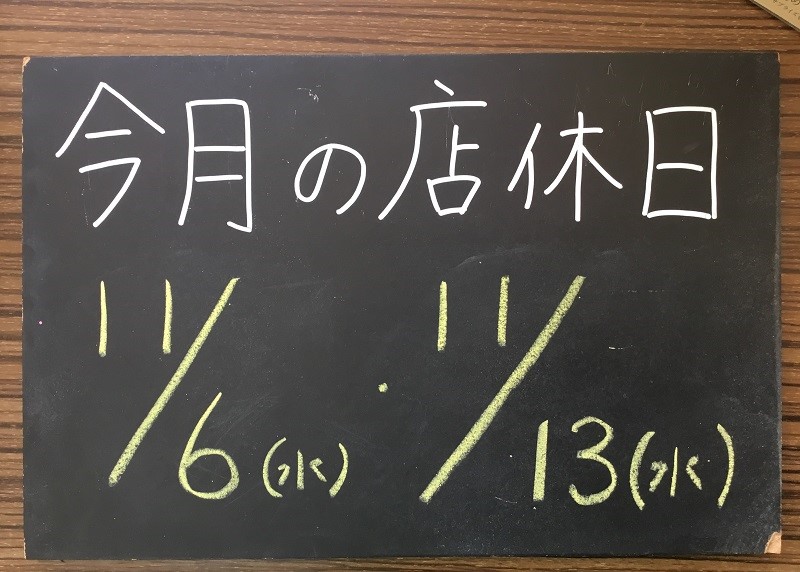 今月の店休日
11/6(水)・11/13(水)